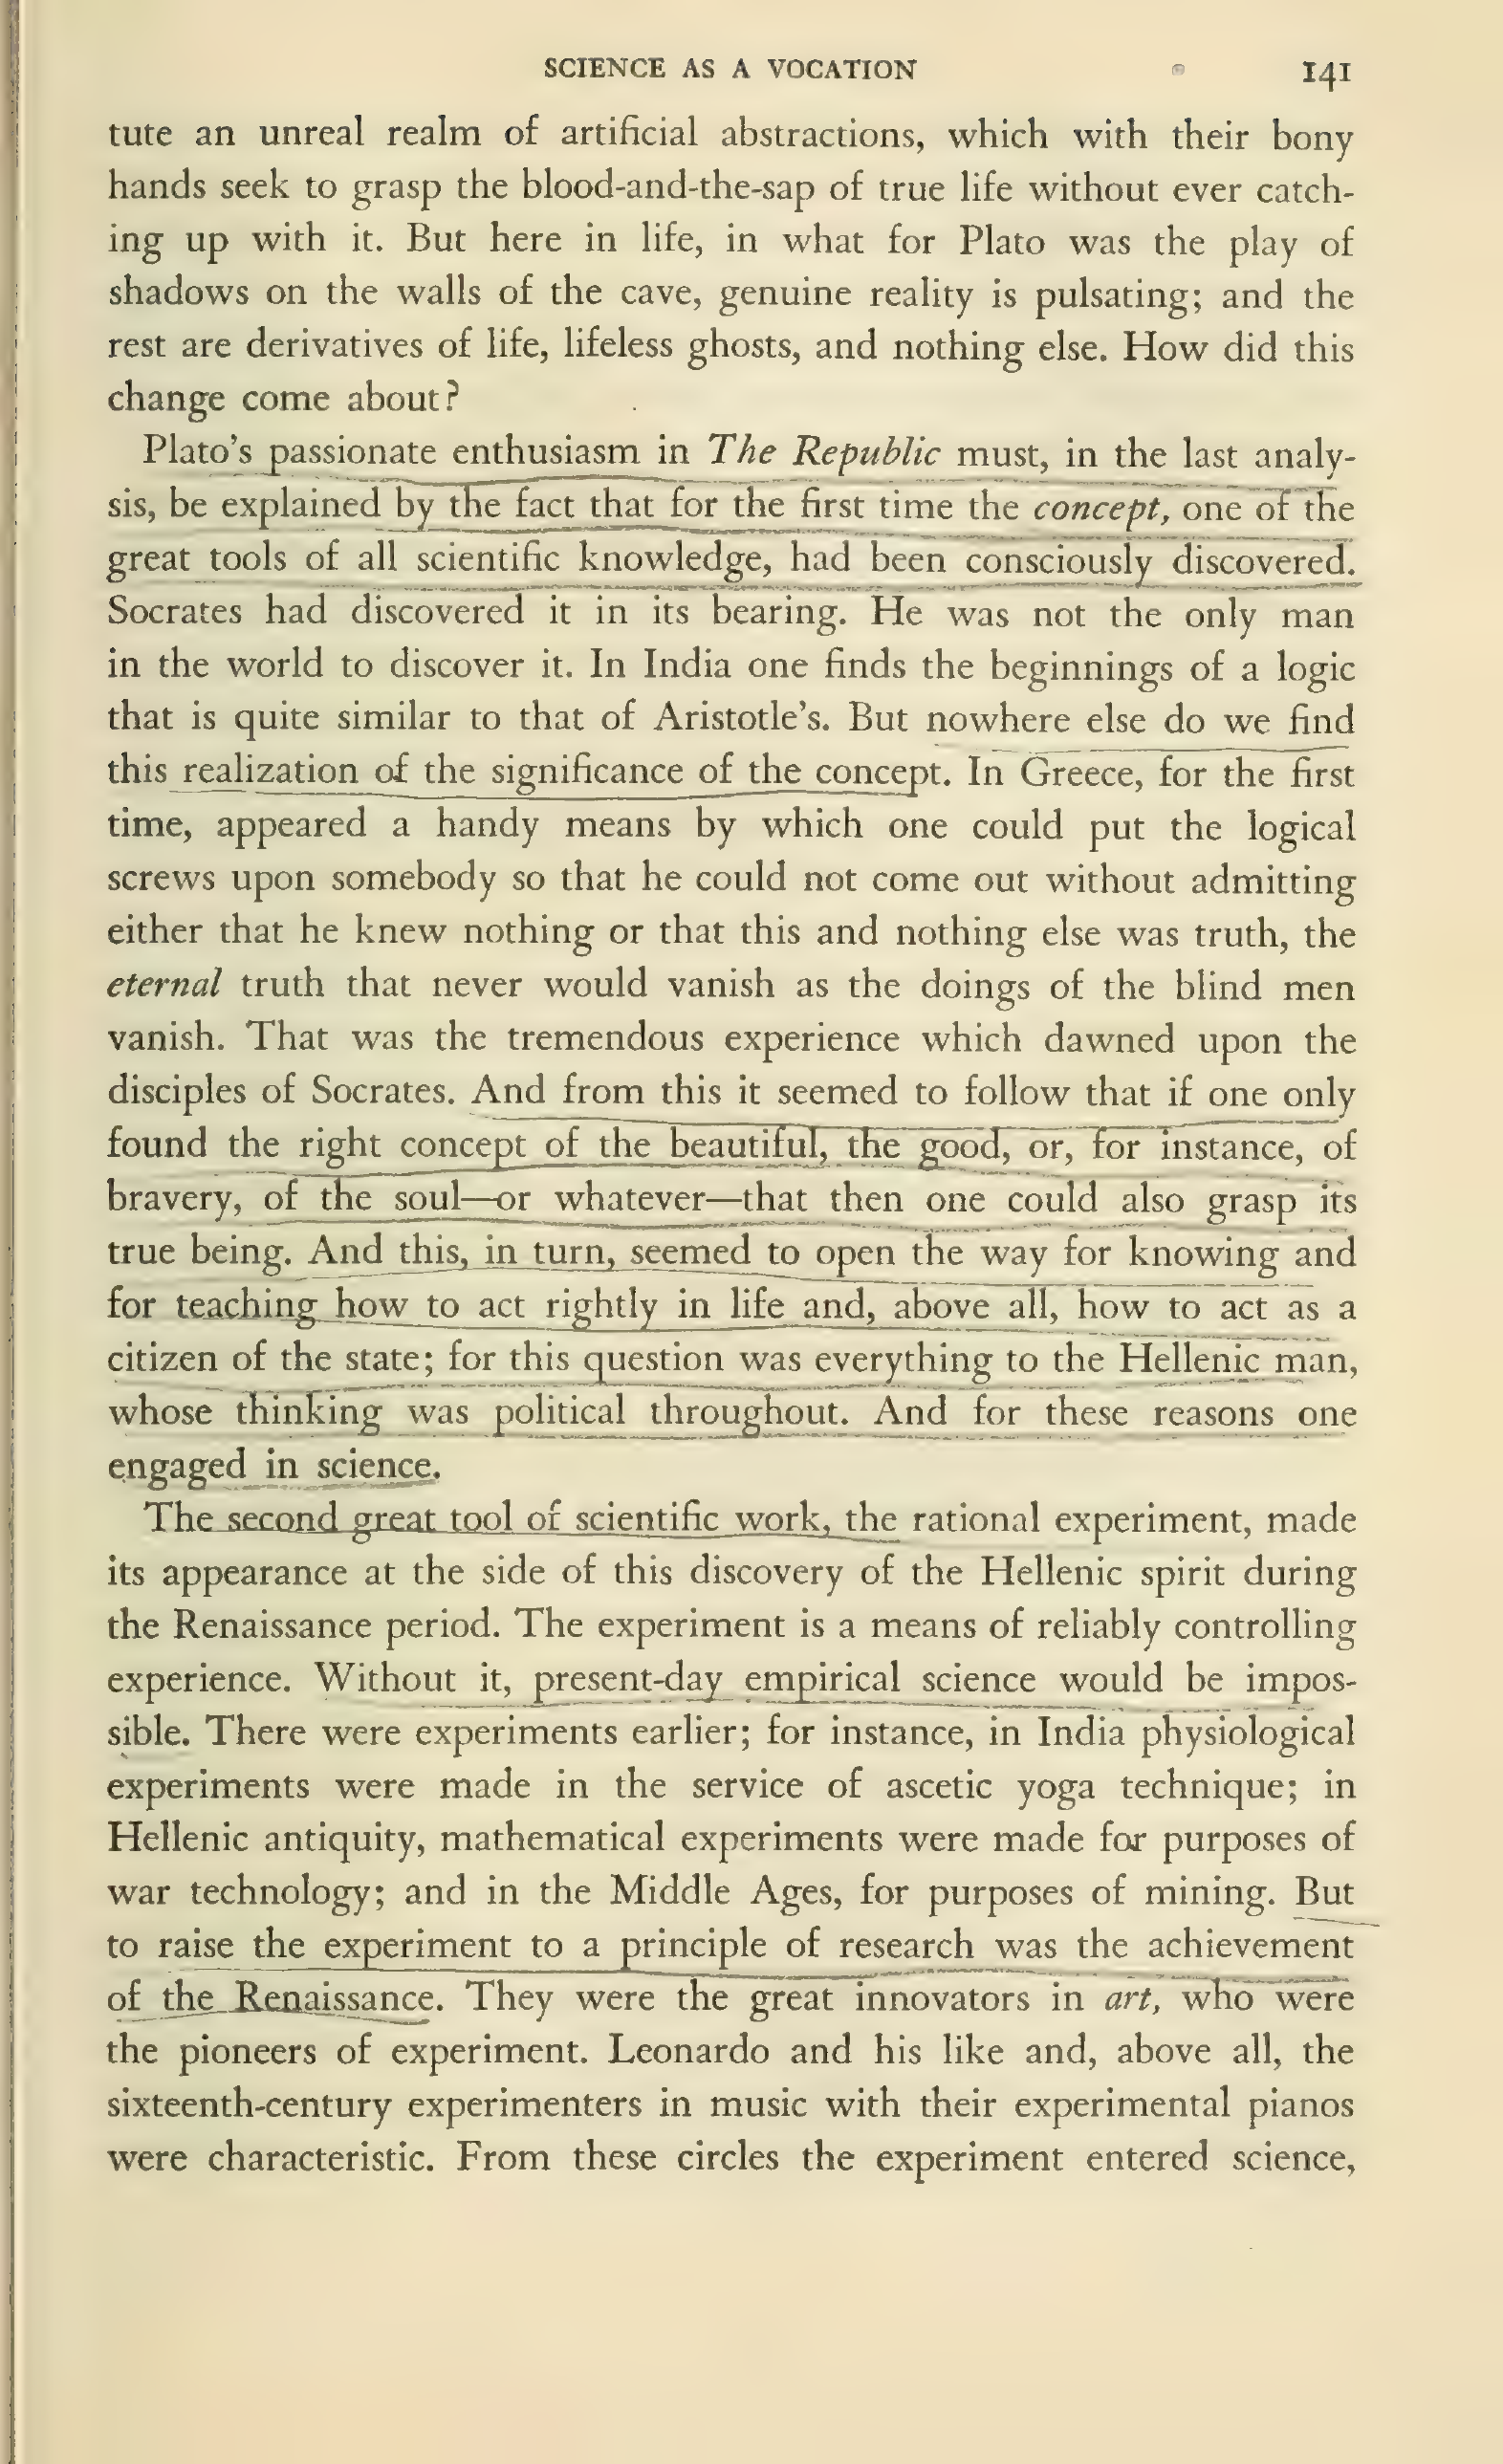 SCIENCE AS A VOCATION 141
tute an unreal realm of artificial abstractions, which with their bony
hands seek to grasp the blood-and-the-sap of true life without ever catch-
ing up with it. But here in life, in what for Plato was the play of
shadows on the walls of the cave, genuine reality is pulsating; and the
rest are derivatives of life, lifeless ghosts, and nothing else. How did this
change come about?
Plato's passionate enthusiasm in The Republic must, in the last analy-
sis, be explained by the fact that for the first time the concept, one of the
great tools of all scientific knowledge, had been consciously discovered.
Socrates had discovered it in its bearing. He was not the only man
in the world to discover it. In India one finds the beginnings of a logic
that is quite similar to that of Aristotle's. But nowhere else do we find
this realization of the significance of the concept. In Greece, for the first
time, appeared a handy means by which one could put the logical
screws upon somebody so that he could not come out without admitting
either that he knew nothing or that this and nothing else was truth, the
eternal truth that never would vanish as the doings of the blind men
vanish. That was the tremendous experience which dawned upon the
disciples of Socrates. And from this it seemed to follow that if one only
found the right concept of the beautiful, the good, or, for instance, of
bravery, of the soul—or whatever—that then one could also grasp its
true being. And this, in turn, seemed to open the way for knowing and
for teaching how to act rightly in life and, above all, how to act as a
citizen of the state; for this question was everything to the Hellenic man,
whose thinking was political throughout. And for these reasons one
engaged in science.
The second great tool of scientific work, the rational experiment, made
its appearance at the side of this discovery of the Hellenic spirit during
the Renaissance period. The experiment is a means of reliably controlling
experience. Without it, present-day empirical science would be impos-
sible. There were experiments earlier; for instance, in India physiological
experiments were made in the service of ascetic yoga technique; in
Hellenic antiquity, mathematical experiments were made for purposes of
war technology; and in the Middle Ages, for purposes of mining. But
to raise the experiment to a principle of research was the achievement
of the Renaissance. They were the great innovators in art, who were
the pioneers of experiment. Leonardo and his like and, above all, the
sixteenth-century experimenters in music with their experimental pianos
were characteristic. From these circles the experiment entered science,